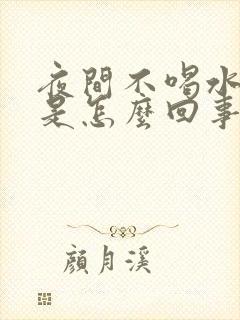 夜間不喝水
是怎麼回事
顏月溪